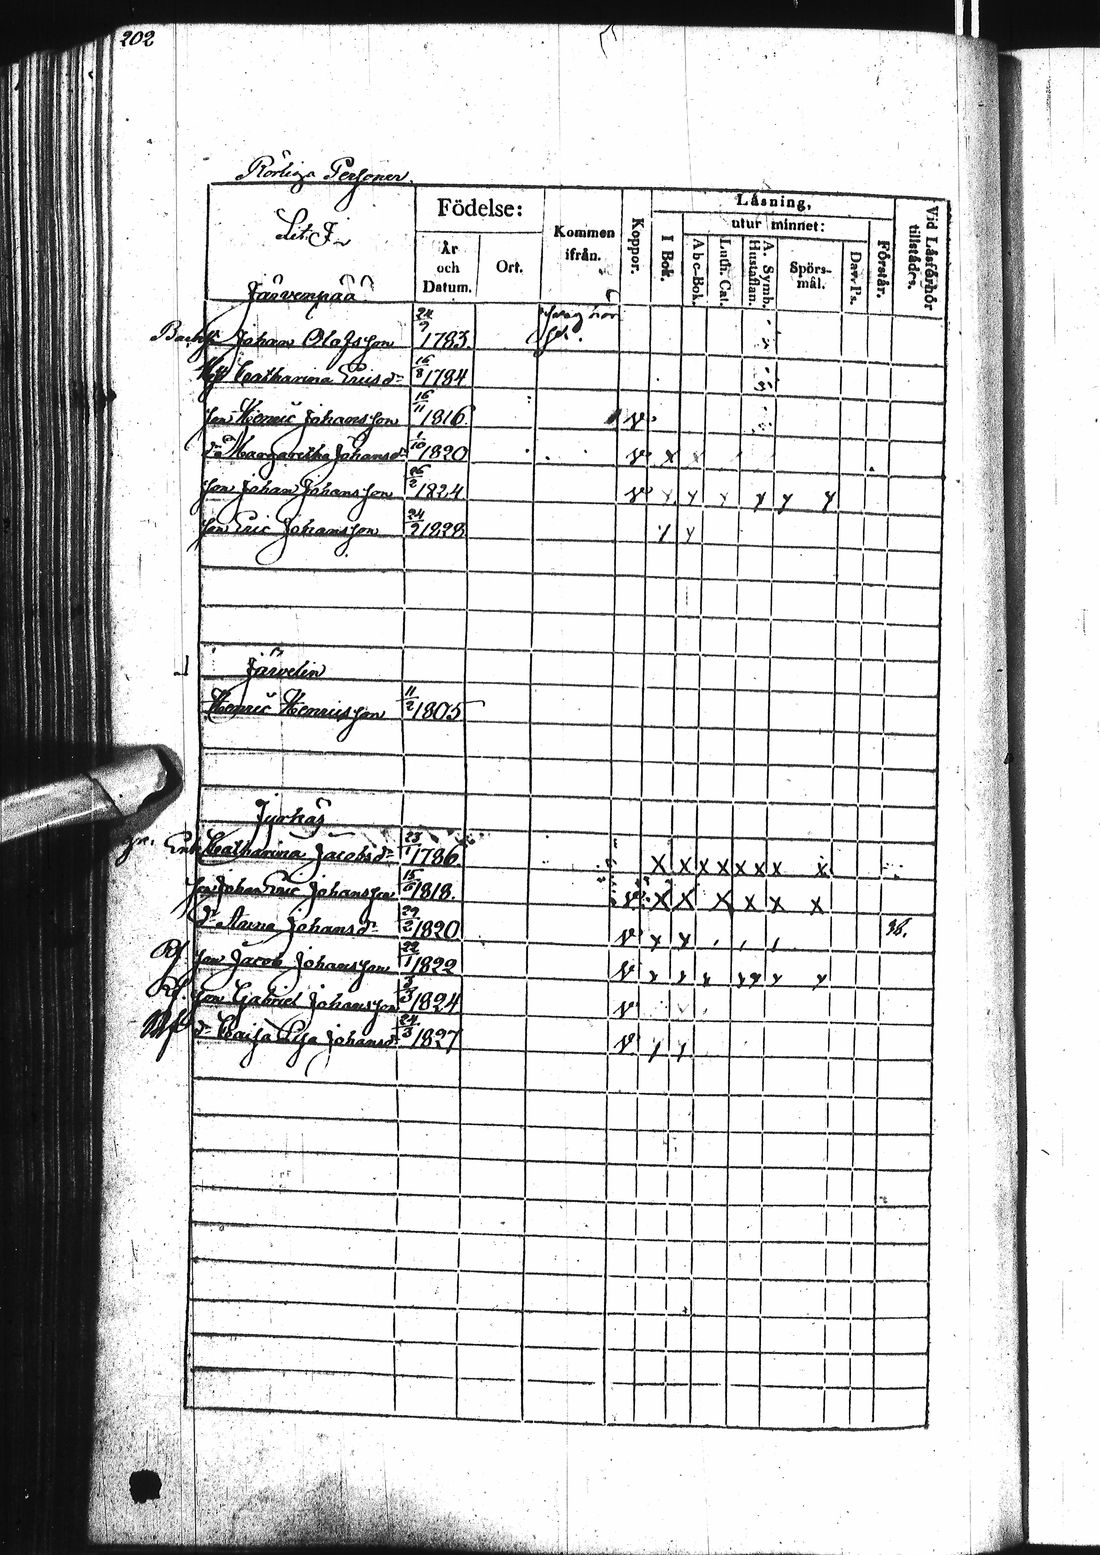 202
Rörliga Personer
Lit. J.
Födelse:
År och Datum.
Ort.
Kommen ifrån.
Koppor.
Läsning,
utur minnet:
I Bok.
Abc-Bok.
Luth. Cat.
A. Symb. Hustaflan.
Spörs-mål.
Dav. Ps.
Förstår.
Vid Läsförhör tillstädes.
Järvenpää
Johan Olofsson 24/9 1783.
Catharina Ericsd:r 16/8 1784
Son Henric Johansson 16/11 1816 v
d:r Margaretha Johansd:r 1/10 1820 v x x
Son Johan Johansson 26/2 1824 v y y y y y y
Son Eric Johansson 24/2 1828 / y
Järvelin
Henric Henricsson 11/2 1805
Jyrkäs
Enk. Catharina Jacobsd:r 23/1 1786 x x x x x x x x
Son Johan Eric Johansson 1818. v x x x x x x
d:r Anna Johansd:r 29/2 1820 v y y , , / 36.
Son Jacob Johansson 22/1 1822 v y y y y y y y
Son Gabriel Johansson 1824 v
d:r Caisa Lisa Johansd:r 24/3 1827 v / /